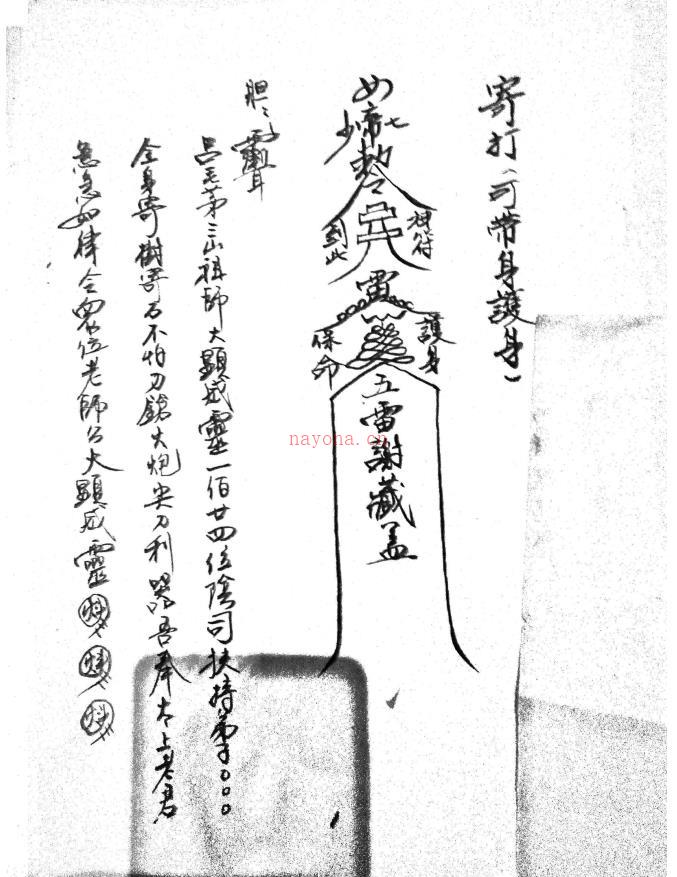 寄打(可帶身護身)
敕令
祖符
到此
雷
護身
保命
五雷謝藏蓋
祖師大顯威靈一佰廿四位陰司扶持弟子○○○
全身寄樹寄石不怕刀鎗大炮尖刀利器吾奉太上老君
急急如律令眾位老師公大顯威靈
nayona.cn